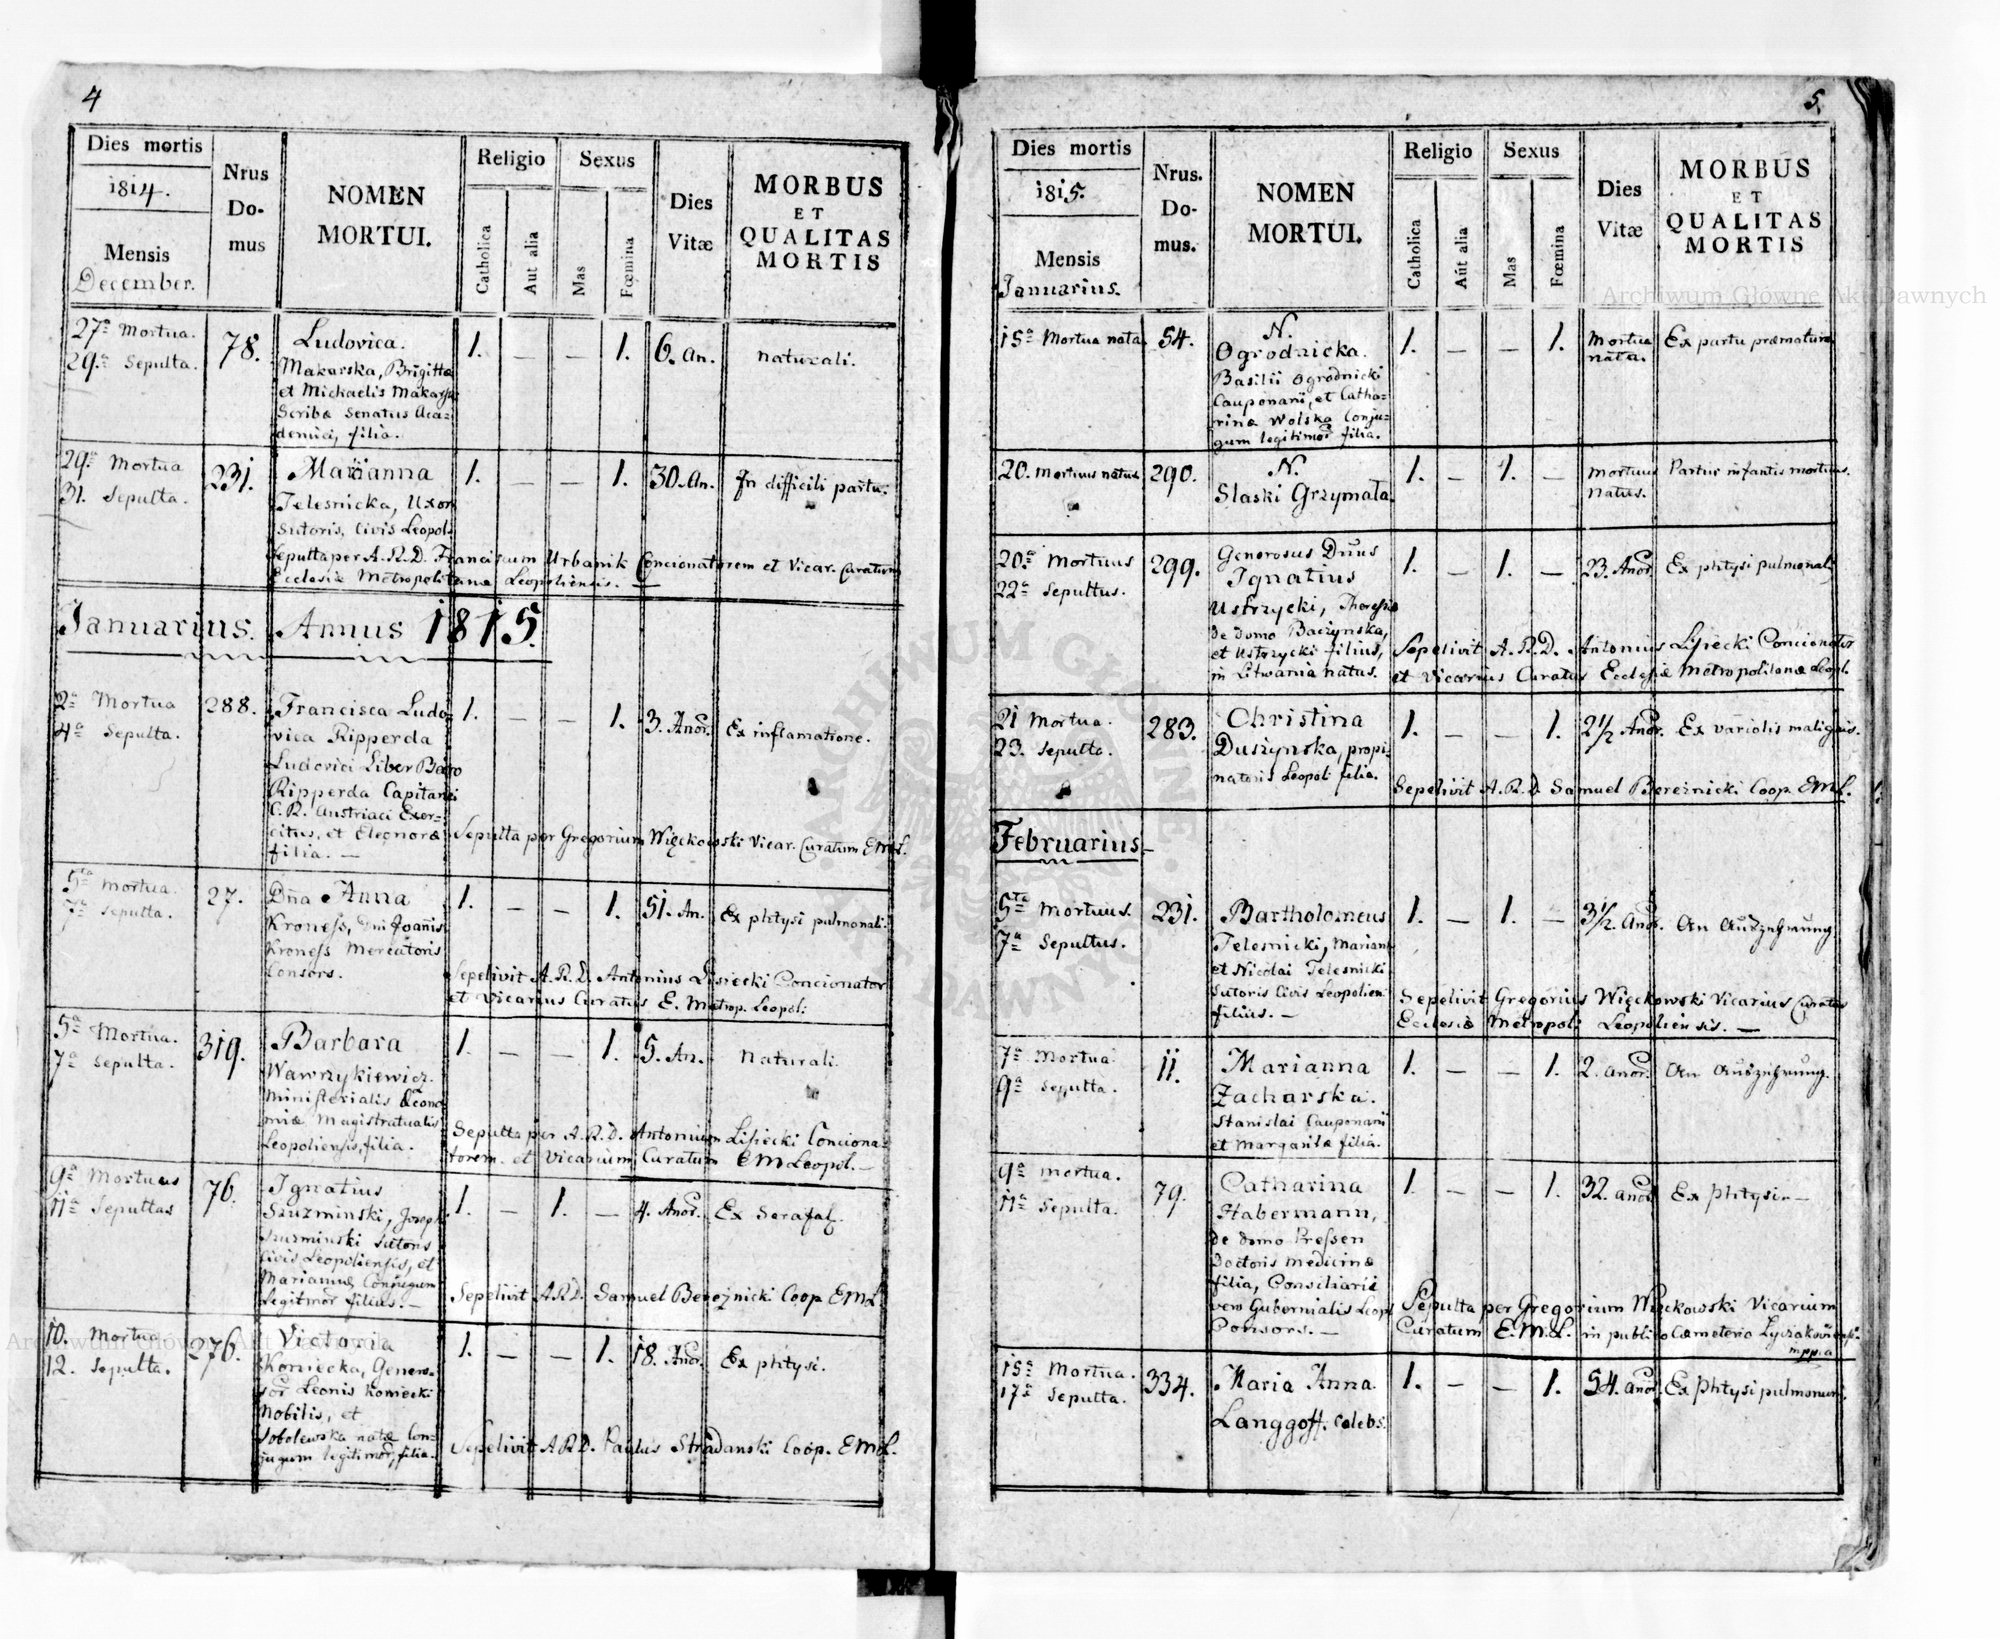 4
Dies mortis
1814.
Mensis
December.
Nrus
Do-
mus
NOMEN
MORTUI.
Religio
Catholica
Aut alia
Sexus
Mas
Fœmina
Dies
Vitæ
MORBUS
ET
QUALITAS
MORTIS
27a Mortua.
29a Sepulta.
78.
Ludovica.
Makarska, Brigittæ
et Michaelis Makarski
Scribæ Senatus Aca-
demici, filia.
1. — — 1.
6. An.
naturali.
29a Mortua
31. Sepulta.
231.
Marianna
Telesnicka, Uxor
Sutoris, Civis Leopol.
1. — — 1.
30. An.
In difficili partu.
Sepulta per A.R.D. Franciscum Urbanik Concionatorem et Vicar. Curatum
Ecclesiæ Metropolitanæ Leopoliensis. —
Januarius. Annus 1815.
2a Mortua
4a Sepulta.
288.
Francisca Ludo-
vica Ripperda
Ludovici Liber Baro
Ripperda Capitanei
C.R. Austriaci Exer-
citus, et Eleonoræ
filia. —
1. — — 1.
3. Anor.
Ex inflamatione.
Sepulta per Gregorium Więckowski Vicar. Curatum EML.
5ta Mortua.
7a Sepulta.
27.
Dna Anna
Kroness, Dni Joanis
Kroness Mercatoris
Consors.
1. — — 1.
51. An.
Ex phtysi pulmonali.
Sepelivit A.R.D. Antonius Lisiecki Concionator
et Vicarius Curatus E. Metrop. Leopoli.
5a Mortua.
7a Sepulta.
319.
Barbara
Wawrzykiewicz.
Ministerialis Œcono-
miæ Magistratualis
Leopoliensis, filia.
1. — — 1.
5. An.
Naturali.
Sepulta per A.R.D. Antonium Lisiecki Conciona-
torem et Vicarium Curatum EM Leopol. —
9a Mortuus
11a Sepultus
76.
Ignatius
Szuzminski, Joseph
Szuzminski Sutoris
Civis Leopoliensis, et
Mariannæ Conjugum
Legitmor filius. —
1. — 1. —
4. Anor.
Ex Serafal.
Sepelivit A.R.D. Samuel Bereźnicki Coop EML
10. Mortua
12. Sepulta.
276.
Victoria
Koniecka, Genero-
sor Leonis Koniecki
Nobilis, et
Sobolewska natæ Con-
jugum legitimor, filia.
1. — — 1.
18. Anor.
Ex phtysi.
Sepelivit A.R.D. Paulus Stradanski Coop. EML.
5.
Dies mortis
1815.
Mensis
Januarius.
Nrus.
Do-
mus.
NOMEN
MORTUI.
Religio
Catholica
Aut alia
Sexus
Mas
Fœmina
Dies
Vitæ
MORBUS
ET
QUALITAS
MORTIS
15a Mortua nata.
54.
N.
Ogrodnicka.
Basilii Ogrodnicki
Cauponarii, et Catha-
rinæ Wolska Conju-
gum legitimor filia.
1. — — 1.
Mortua
nata.
Ex partu præmaturo.
20. Mortuus natus
290.
N.
Slaski Grzymała.
1. — 1. —
Mortuus
Natus.
Partus infantis mortuus.
20a Mortuus
22a Sepultus.
299.
Generosus Dnus
Ignatius
Ustrzycki, Theresiæ
de domo Baczynska,
et Ustrzycki filius,
in Litwania natus.
1. — 1. —
23. Anor
Ex phtysi pulmonali
Sepelivit A.R.D. Antonius Lisiecki Concionator
et Vicarius Curatus Ecclesiæ Metropolitanæ Leopl.
21 Mortua.
23. Sepulta.
283.
Christina
Duszynska, propi-
natoris Leopoli filia.
1. — — 1.
2 1/2 Anor.
Ex variolis malignis.
Sepelivit A.R.D Samuel Bereźnicki Coop EML.
Februarius—
5ta Mortuus.
7a Sepultus.
231.
Bartholomeus
Telesnicki, Mariann
et Nicolai Telesnicki
Sutoris Civis Leopolien
filius. —
1. — 1. —
3 1/2. Anor.
An Auszehrung
Sepelivit Gregorius Więckowski Vicarius Curatus
Ecclesiæ Metropoli Leopoliensis. —
7a Mortua
9a Sepulta.
11.
Marianna
Zacharska.
Stanislai Cauponarii
et Margaritæ filia.
1. — — 1.
2. Anor.
An Auszehrung.
9a Mortua.
11a Sepulta.
79.
Catharina
Habermann,
de domo Pressen
Doctoris Medicinæ
filia, Consiliarii
vero Gubernialis Leopl
Consors. —
1. — — 1.
32. Anor
Ex phtysi. —
Sepulta per Gregorium Więckowski Vicarium
Curatum E.M.L. in publico Cæmeterio Lyczakoviensi.
mppia
15a Mortua.
17a Sepulta.
334.
Maria Anna.
Langgoff. Celebs.
1. — — 1.
54. Anor.
Ex phtysi pulmonum.
Archiwum Główne Akt Dawnych
Archiwum Główne Akt Dawnych
ARCHIWUM GŁÓWNE AKT DAWNYCH